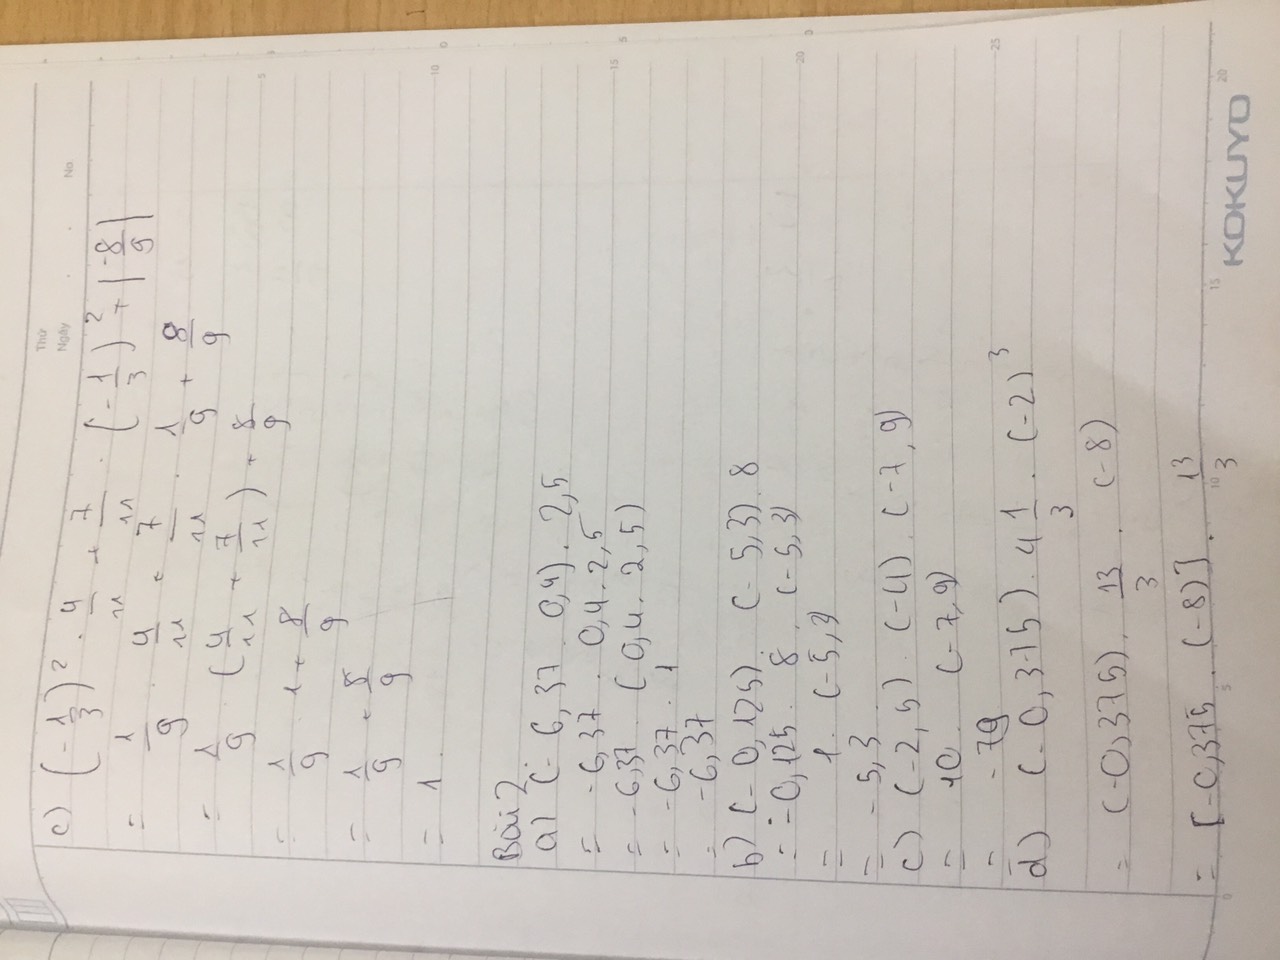 Thứ
Ngày . . No.
c) (-1/3)² . 4/11 + 7/11 . (-1/3)² + |-8/9|
= 1/9 . 4/11 + 7/11 . 1/9 + 8/9
= 1/9 . (4/11 + 7/11) + 8/9
= 1/9 . 1 + 8/9
= 1/9 + 8/9
= 1.
Bài 2
a) (-6,37 . 0,4) . 2,5
= -6,37 . 0,4 . 2,5
= -6,37 . (0,4 . 2,5)
= -6,37 . 1
= -6,37
b) (-0,125) . (-5,3) . 8
= -0,125 . 8 . (-5,3)
= 1 . (-5,3)
= -5,3
c) (-2,5) . (-4) . (-7,9)
= 10 . (-7,9)
= -79
d) (-0,375) . 4 1/3 . (-2)³
= (-0,375) . 13/3 . (-8)
= [-0,375 . (-8)] . 13/3
KOKUYO